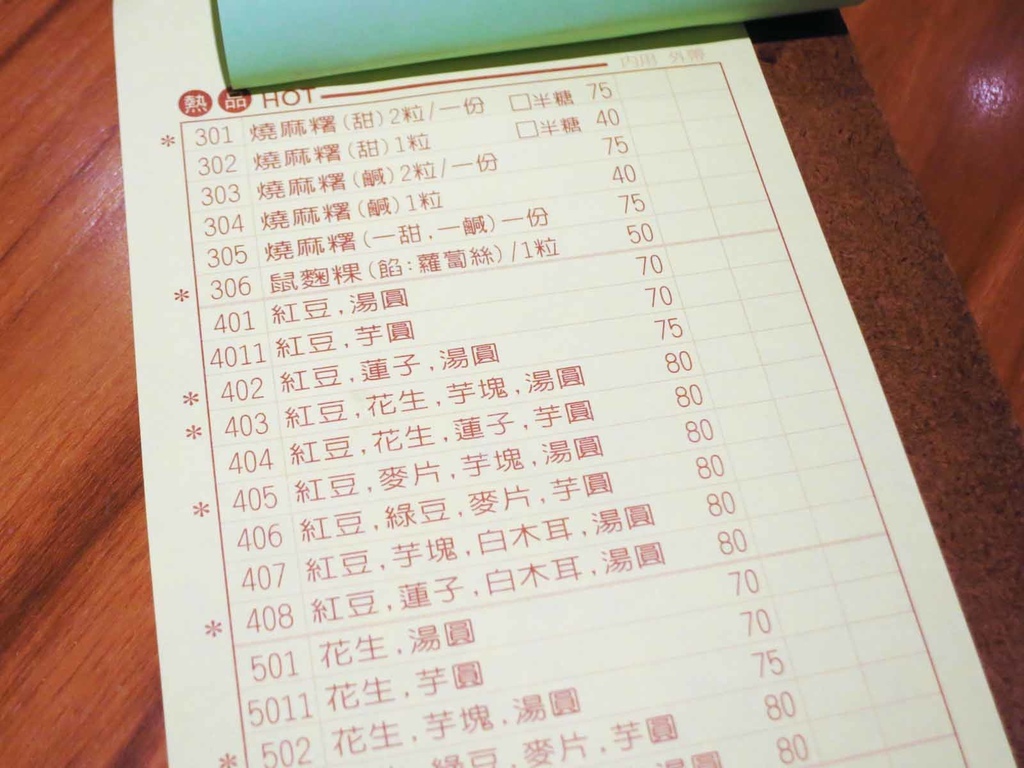 熱品 HOT 內用 外帶
* 301 燒麻糬(甜)2粒/一份 □半糖 75
302 燒麻糬(甜)1粒 □半糖 40
303 燒麻糬(鹹)2粒/一份 75
304 燒麻糬(鹹)1粒 40
305 燒麻糬(一甜.一鹹)一份 75
* 306 鼠麴粿(餡:蘿蔔絲)/1粒 50
401 紅豆,湯圓 70
4011 紅豆,芋圓 70
* 402 紅豆,蓮子,湯圓 75
* 403 紅豆,花生,芋塊,湯圓 80
404 紅豆,花生,蓮子,芋圓 80
* 405 紅豆,麥片,芋塊,湯圓 80
406 紅豆,綠豆,麥片,芋圓 80
407 紅豆,芋塊,白木耳,湯圓 80
* 408 紅豆,蓮子,白木耳,湯圓 80
501 花生,湯圓 70
5011 花生,芋圓 70
* 502 花生,芋塊,湯圓 75
綠豆,麥片,芋圓 80
湯圓 80